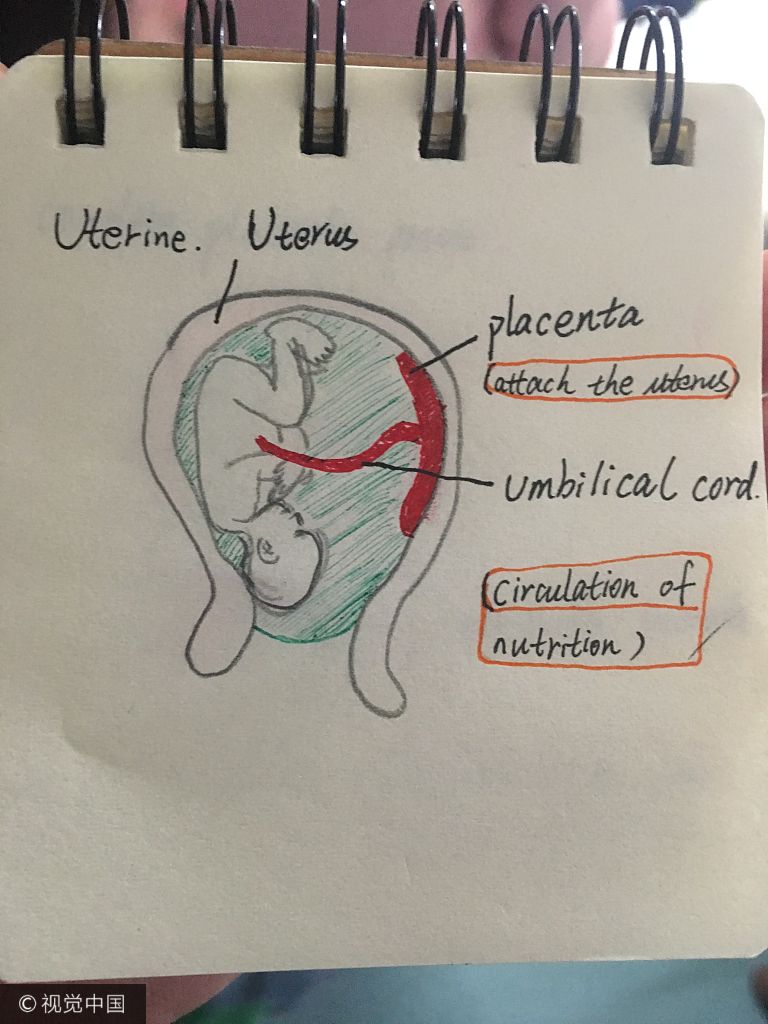 Uterine. Uterus
placenta
(attach the uterus)
umbilical cord.
(circulation of
nutrition)
© 视觉中国